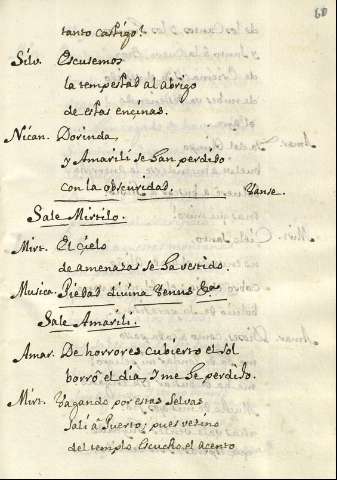 60
tanto castigo!
Silv. Escusemos
la tempestad al abrigo
de estas encinas.
Nican. Dorinda,
y Amarili se han perdido
con la obscuridad. Vanse.
Sale Mirtilo.
Mirt. El cielo
de amenazas se ha vestido.
Musica. Piedad divina Venus &a.
Sale Amarili.
Amar. De horrores cubierto el sol
borró el dia, y me he perdido.
Mirt. Vagando por estas selvas
salí à Puerto; pues vezino
del templo escucho el acento